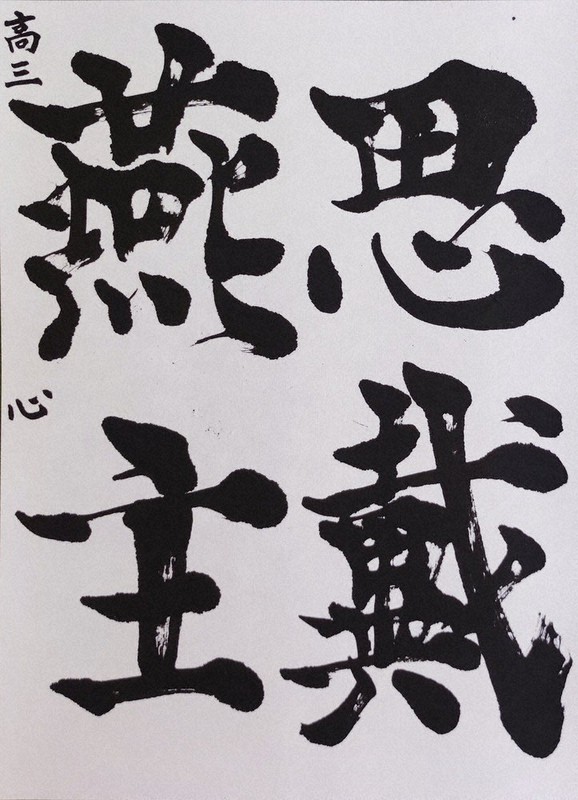 思戴
燕主
高三
心